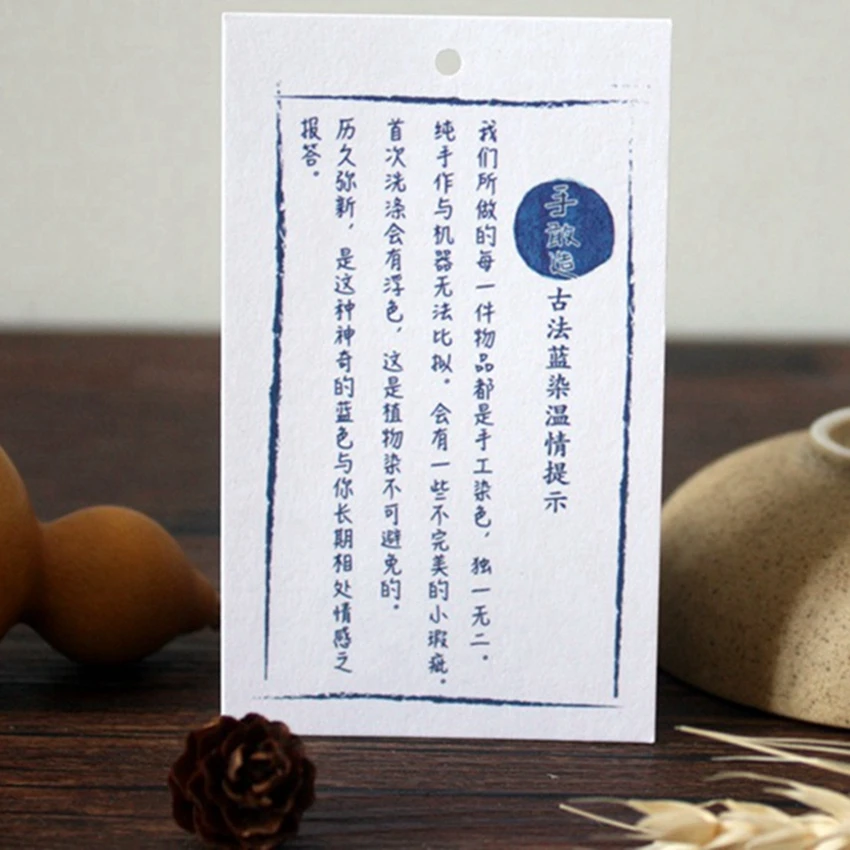 手敢造
古法蓝染温情提示
我们所做的每一件物品都是手工染色，独一无二。
纯手作与机器无法比拟。会有一些不完美的小瑕疵。
首次洗涤会有浮色，这是植物染不可避免的。
历久弥新，是这种神奇的蓝色与你长期相处情感之
报答。